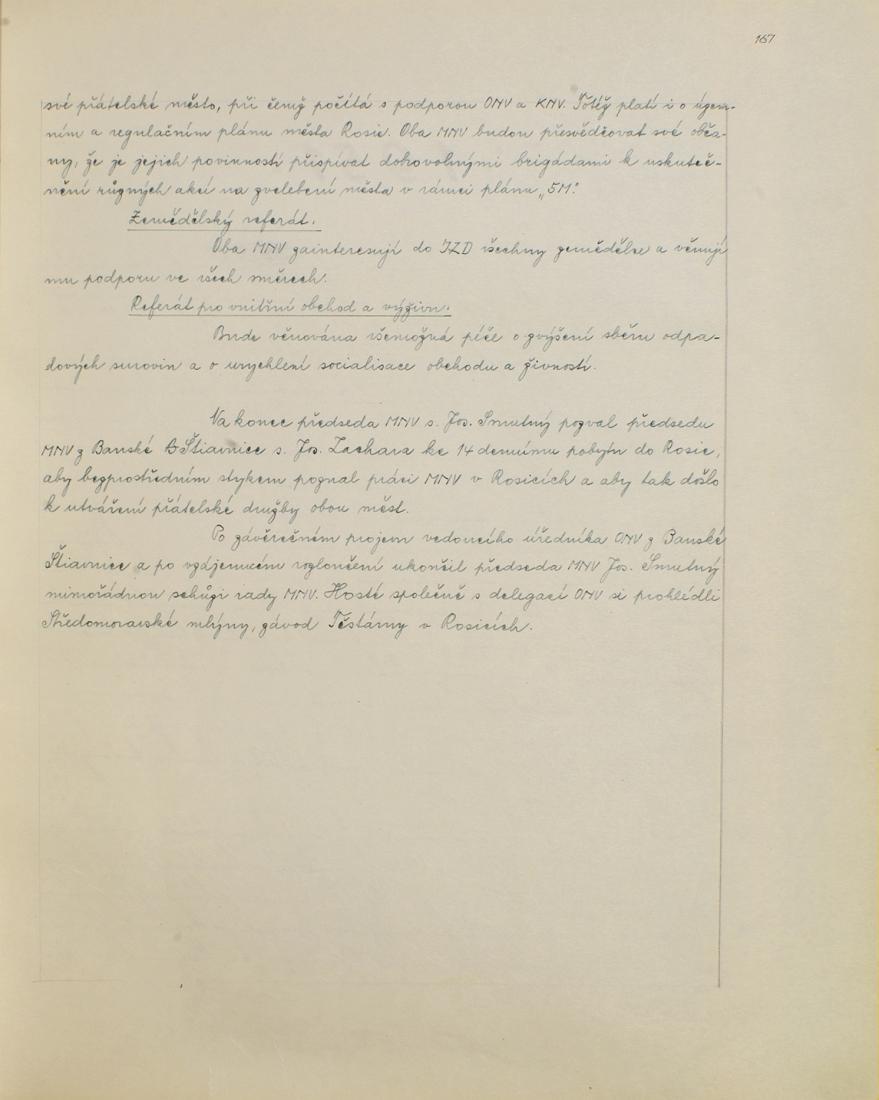 167
své přátelské město, při čemž počítá s podporou ONV a KNV. Totéž platí i o územ-
ním a regulačním plánu města Rosic. Oba MNV budou přesvědčovat své obča-
ny, že je jejich povinností přispívat dobrovolnými brigádami k uskuteč-
nění různých akcí na zvelebení města v rámci plánu „5M".
Zemědělský referát.
Oba MNV zainteresují do JZD všechny zemědělce a věnují
mu podporu ve všech směrech.
Referát pro vnitřní obchod a výživu.
Bude věnována všemožná péče o zvýšení sběru odpa-
dových surovin a o urychlení socialisace obchodu a živností.
Na konec předseda MNV s. Jos. Smutný pozval předsedu
MNV z Banské Štiavnice s. Jos. Zachara ke 14 dennímu pobytu do Rosic,
aby bezprostředním stykem poznal práci MNV v Rosicích a aby tak došlo
k utváření přátelské družby obou měst.
Po závěrečném projevu vedoucího úředníka ONV z Banské
Štiavnice a po vzájemném rozloučení ukončil předseda MNV Jos. Smutný
mimořádnou schůzi rady MNV. Hosté společně s delegací ONV si prohlédli
Středomoravské mlýny, závod Těstárny v Rosicích.